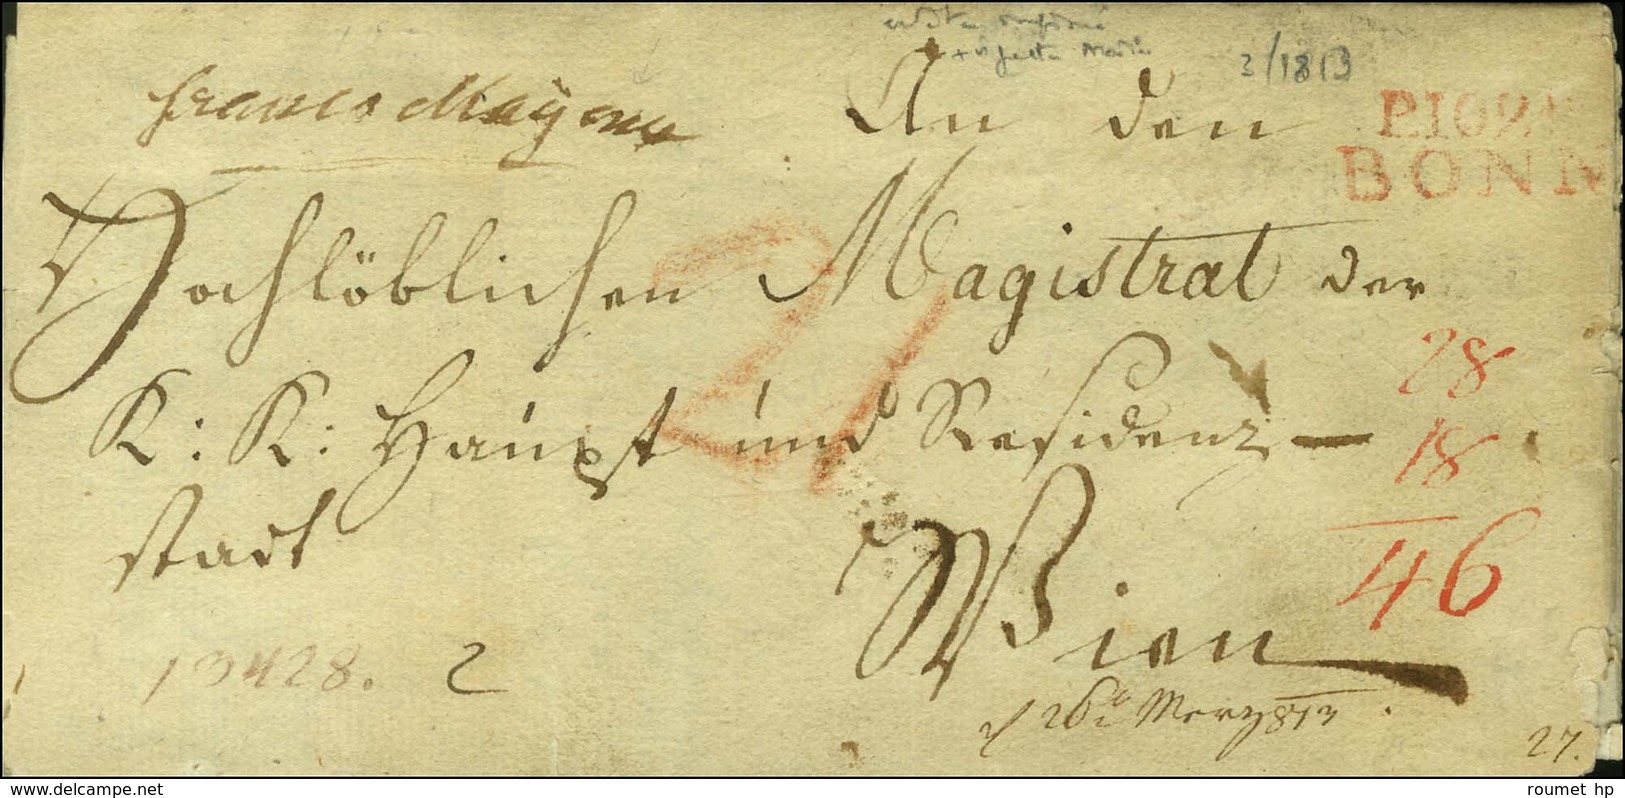 3/1813
franco Maÿence
An den
P.109.P
BONN
Hochlöblichen Magistrat der
K: K: Haupt und Residenz-
stadt
21
28
18
46
Wien
13428. 2
26t Merz 813
27.
www.delcampe.net
roumet hp